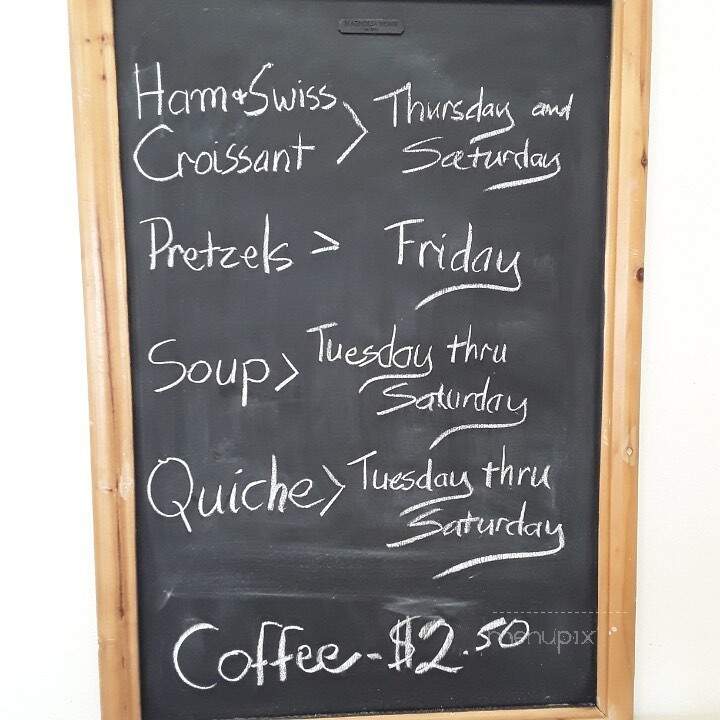 Ham & Swiss
Croissant > Thursday and
Saturday
Pretzels > Friday
Soup > Tuesday thru
Saturday
Quiche > Tuesday thru
Saturday
Coffee - $2.50
menupix